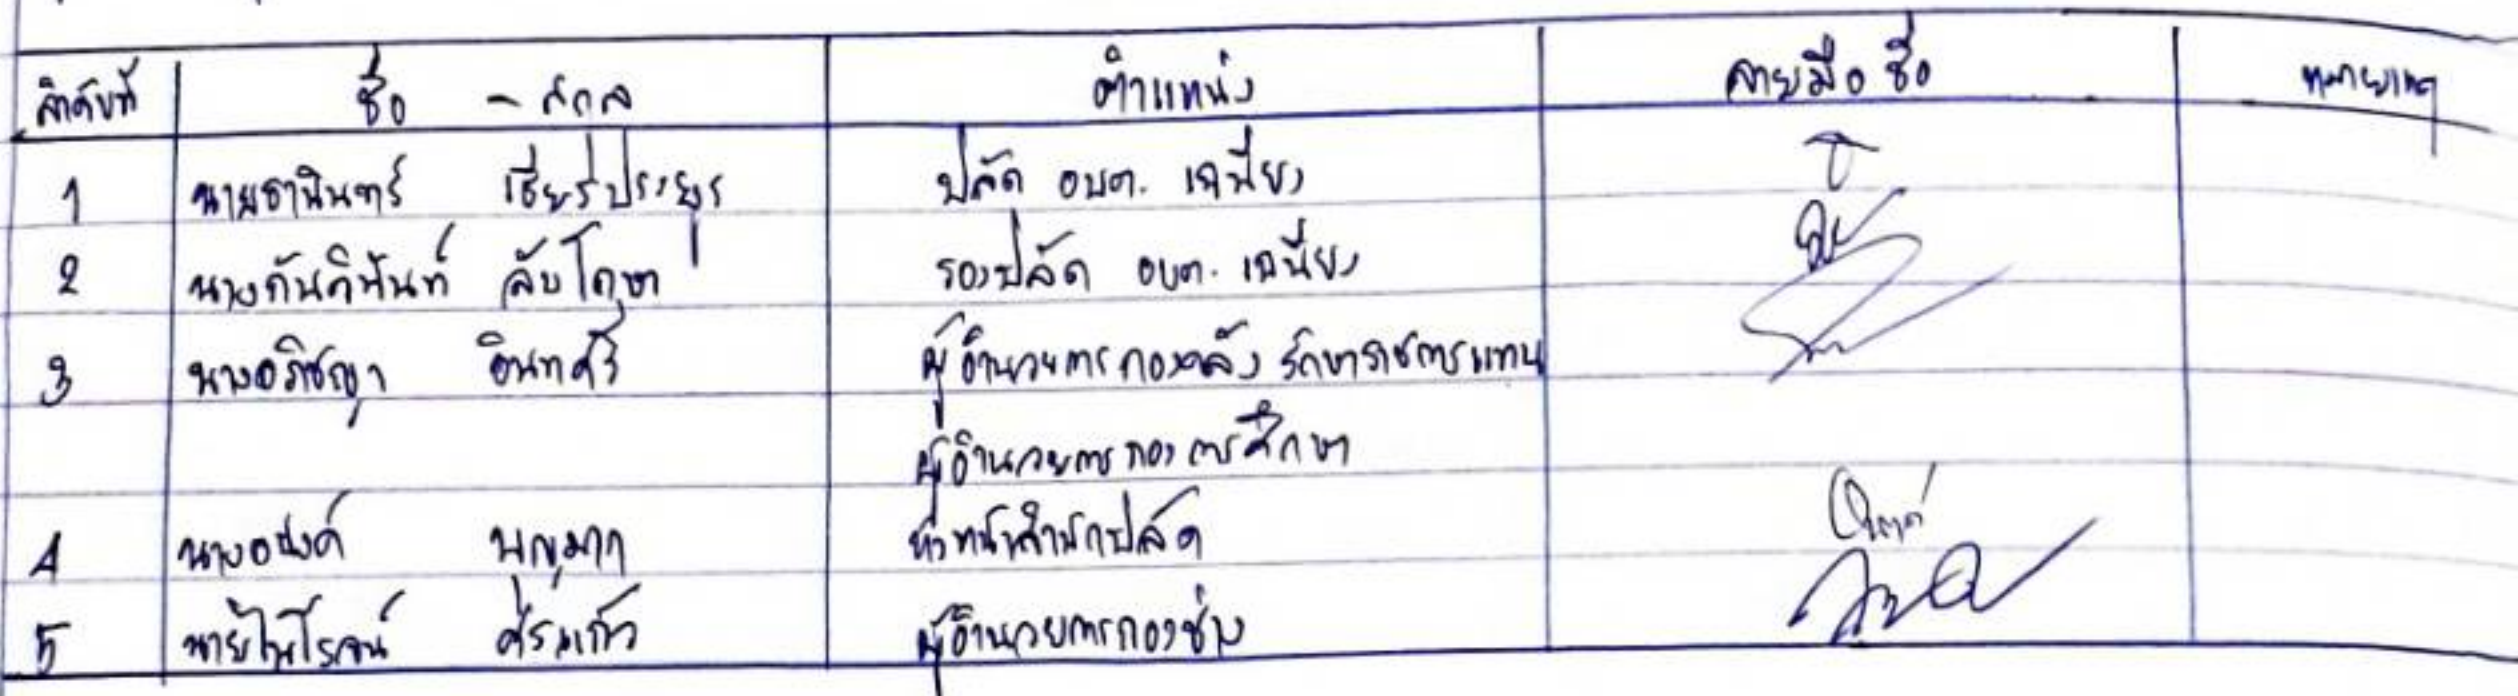 ลำดับที่ ชื่อ - สกุล ตำแหน่ง ลายมือชื่อ หมายเหตุ
1 นายธานินทร์ เธียรประยูร ปลัด อบต. เฉนียง
2 นางกันตินันท์ ลับโกษา รองปลัด อบต. เฉนียง
3 นางอภิชญา อินทศรี ผู้อำนวยการกองคลัง รักษาราชการแทน
ผู้อำนวยการกองการศึกษา
4 นางอนงค์ บุญมาก หัวหน้าสำนักปลัด
5 นายไพโรจน์ ศรีแก้ว ผู้อำนวยการกองช่าง